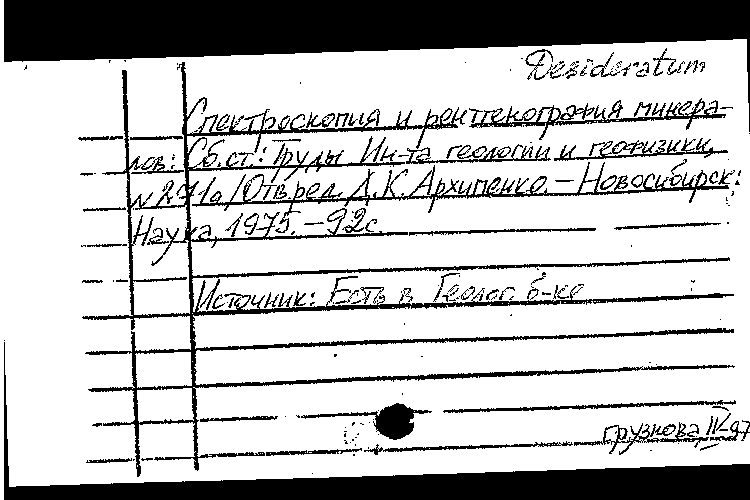 Desideratum
Спектроскопия и рентгенография минера-
лов: Сб. ст.: Труды Ин-та геологии и геофизики,
№ 291а / Отв. ред. Д. К. Архипенко. – Новосибирск:
Наука, 1975. – 92 с.
Источник: Есть в Геолог. б-ке
Грузнова, IV-97